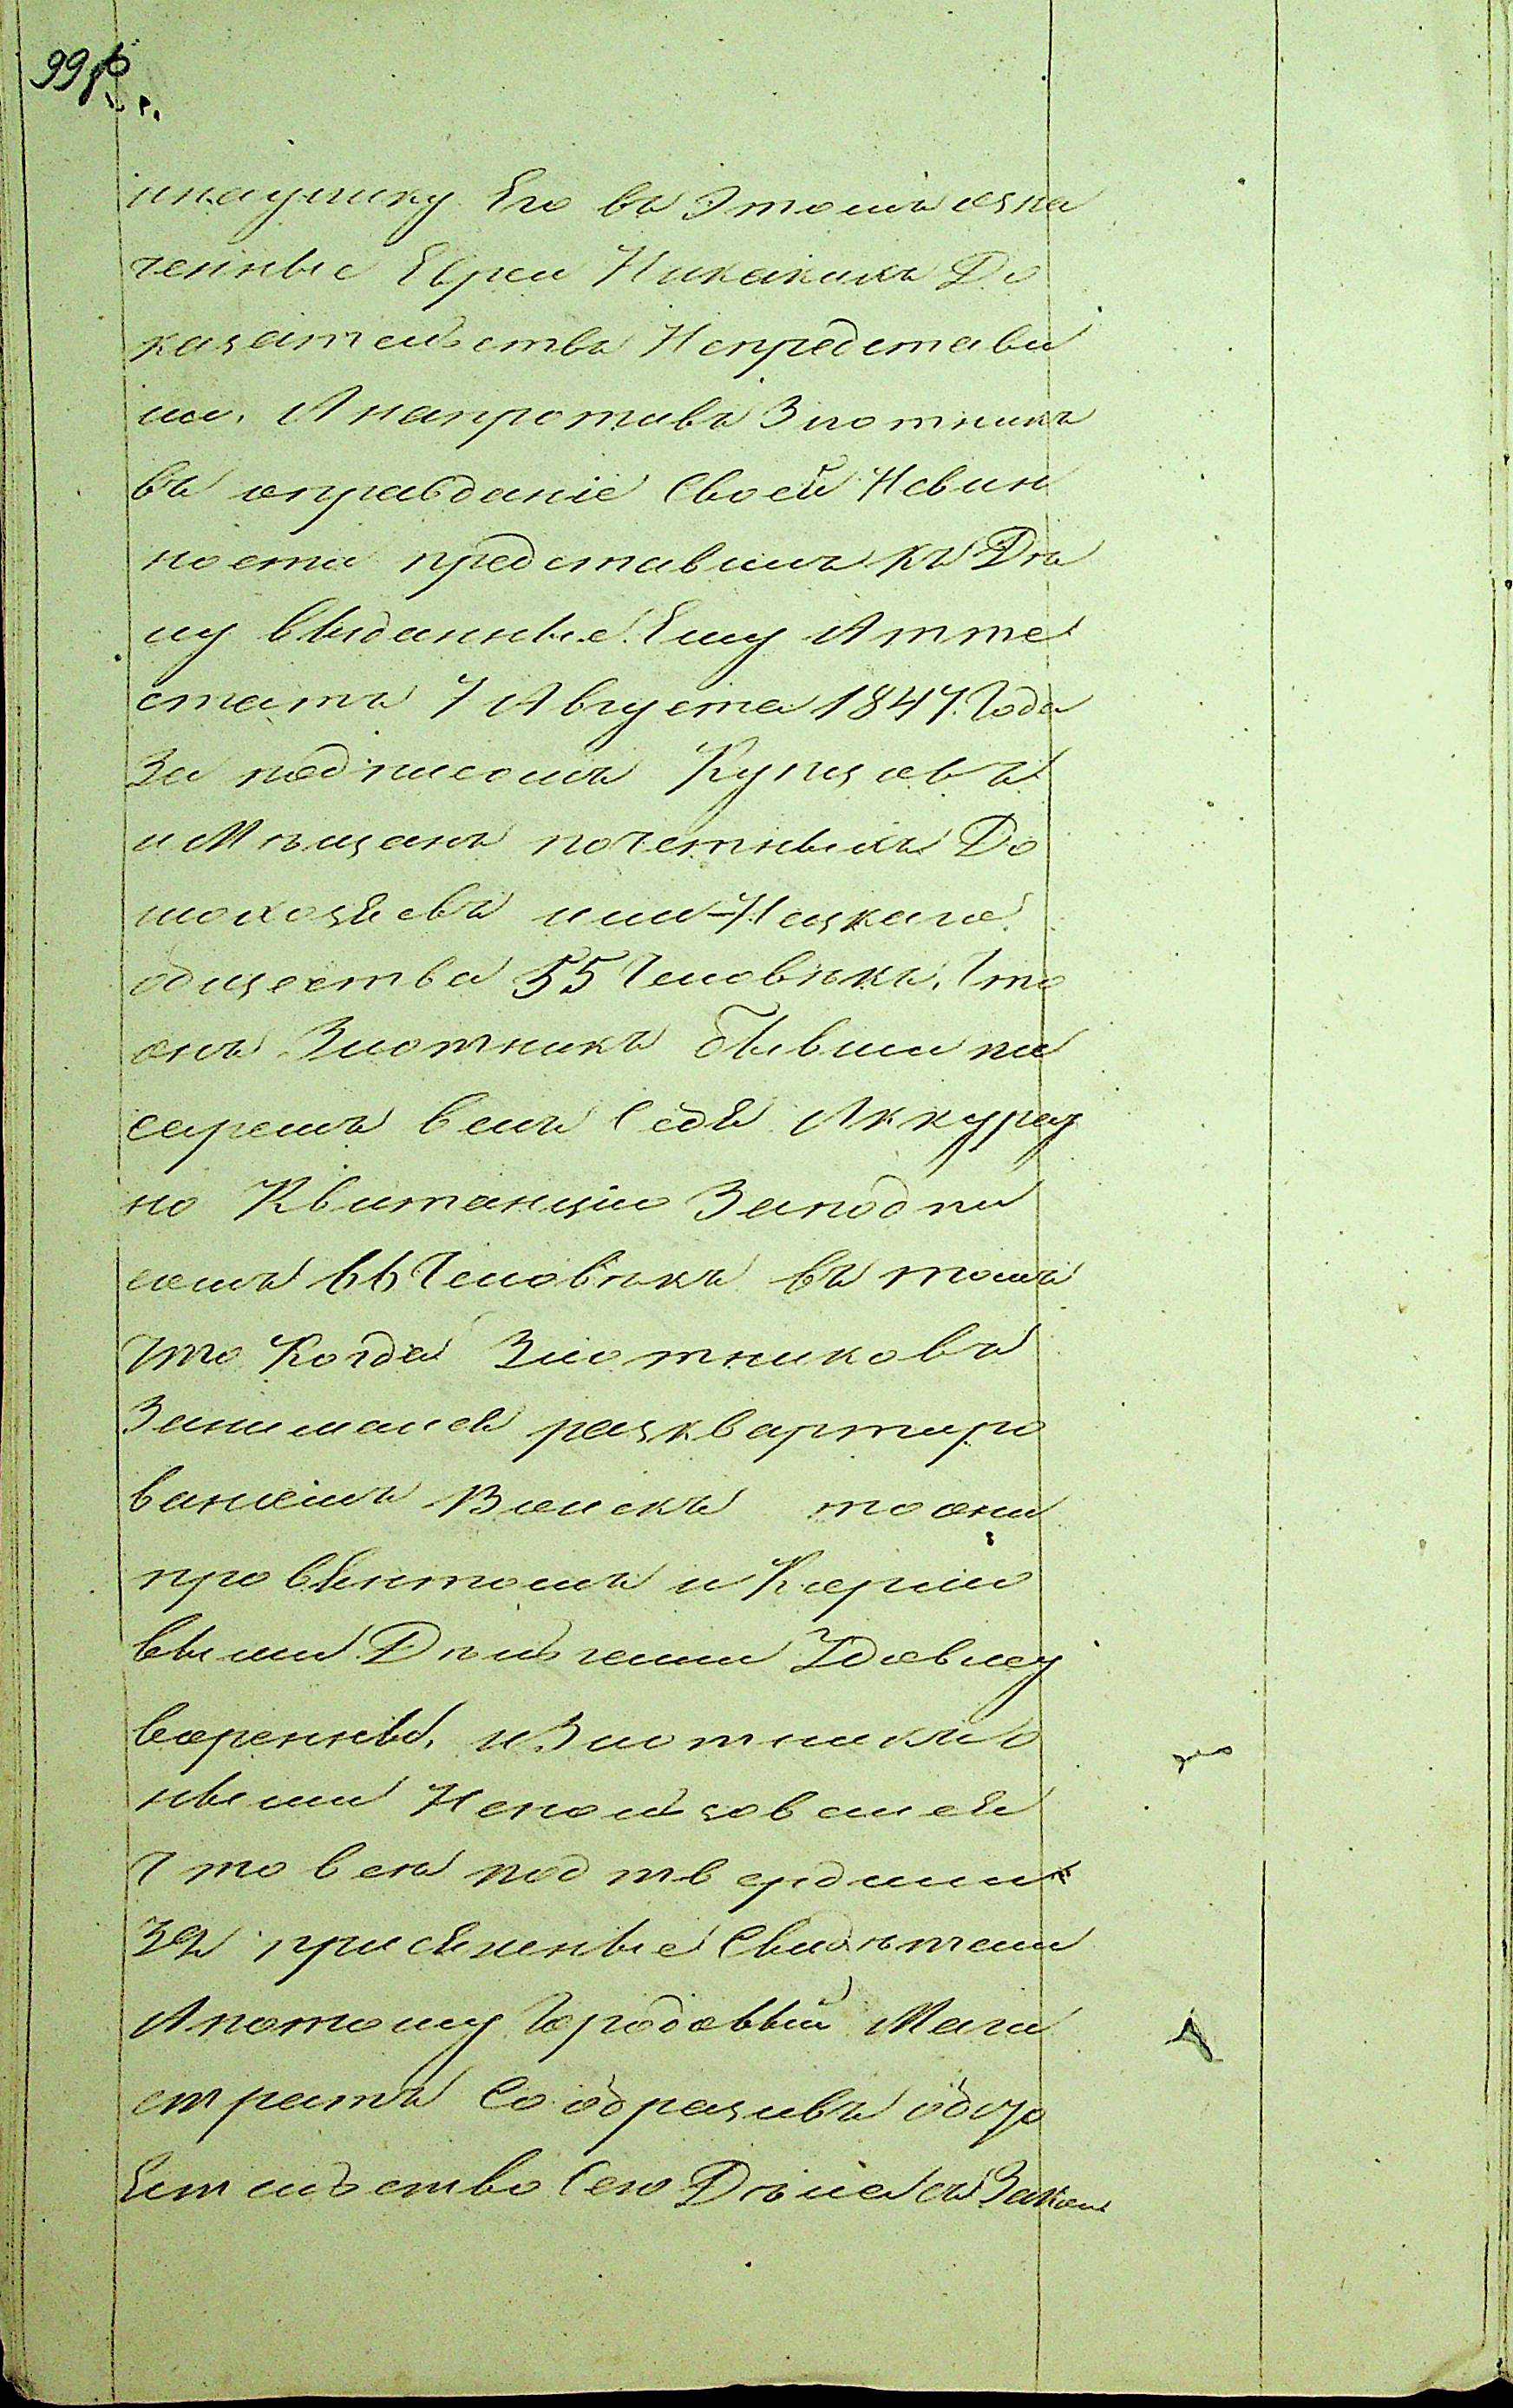 998
инаулику Его въ Этомъ озна
ченные Евреи Никакихъ До
казательствъ Непредстави
ли, А напротивъ Злотникъ
въ оправданіе Своей Невин
ности представилъ къ Дѣ
лу выданные Ему Атте
статъ 7 Августа 1847 Года
За подписомъ Купцовъ
и Мѣщанъ почетныхъ До
мохозяевъ
общества 55 Человѣкъ, Что
онъ Злотникъ бывши пи
саремъ велъ Себя Аккурат
но Квитанцію Заподпи
сомъ 66 Человѣкъ въ томъ
Что Когда Злотниковъ
Занимался разквартиро
ваніемъ Воискъ то они
провіянтомъ и Кормо
выми Деньгами Удовлет
воренны, и Злотникъ О
ными Непользовался
Что всѣ подтвердили
За присяжные Свидѣтели
Апотому Городовый Маги
стратъ Сообразивъ обсто
ятельство Сего Дѣла съ Закон